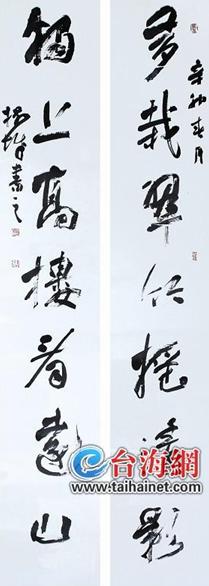 多栽翠竹摇清影
辛卯春月
独上高楼看远山
书之
台海網
www.taihainet.com